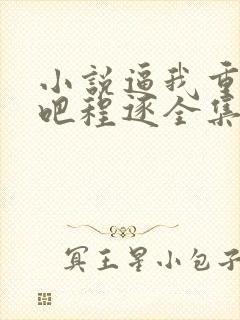 小説逼我重
吧程逐全集
冥王星小包子